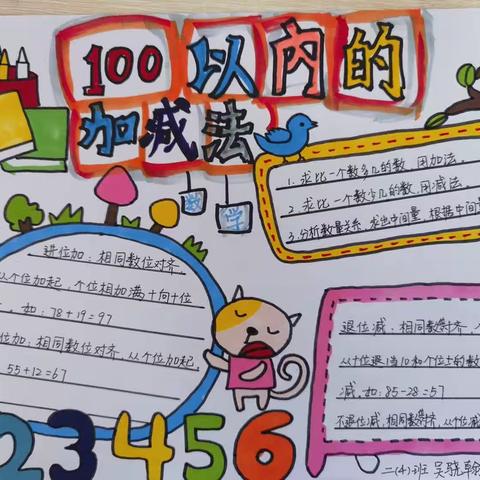 100以内的
加减法
数学
1.求比一个数多几的数,用加法。
2.求比一个数少几的数,用减法。
3.分析数量关系,求出中间量,根据中间
进位加:相同数位对齐,
从个位加起,个位相加满十向十位
如:78+19=97
位加:相同数位对齐,从个位加起,
55+12=67
退位减,相同数位对齐,个
从十位退1当10和个位上的数
减,如:85-28=57
不退位减,相同数位对齐,从个位减
23456
二(4)班 吴骁翰